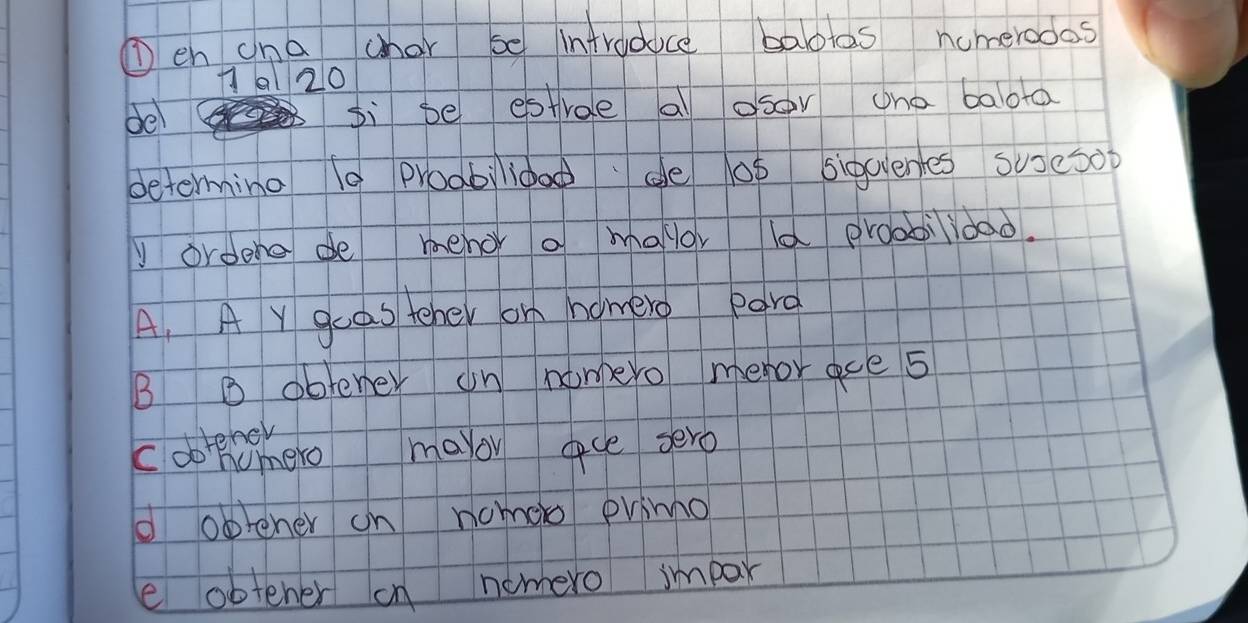 ① en una unar se introduce balotas numerodas
1 al 20
del si se estrae al asar una balota
determina la Proabilidad de los sigauientes susesos
y ordena de menor a mayor la proabilidad.
A. A Y guas tener un numero para
B B obtener un numero menor que 5
obtener
C numero mayor que sero
d obtener un numero primo
e obtener un numero impar